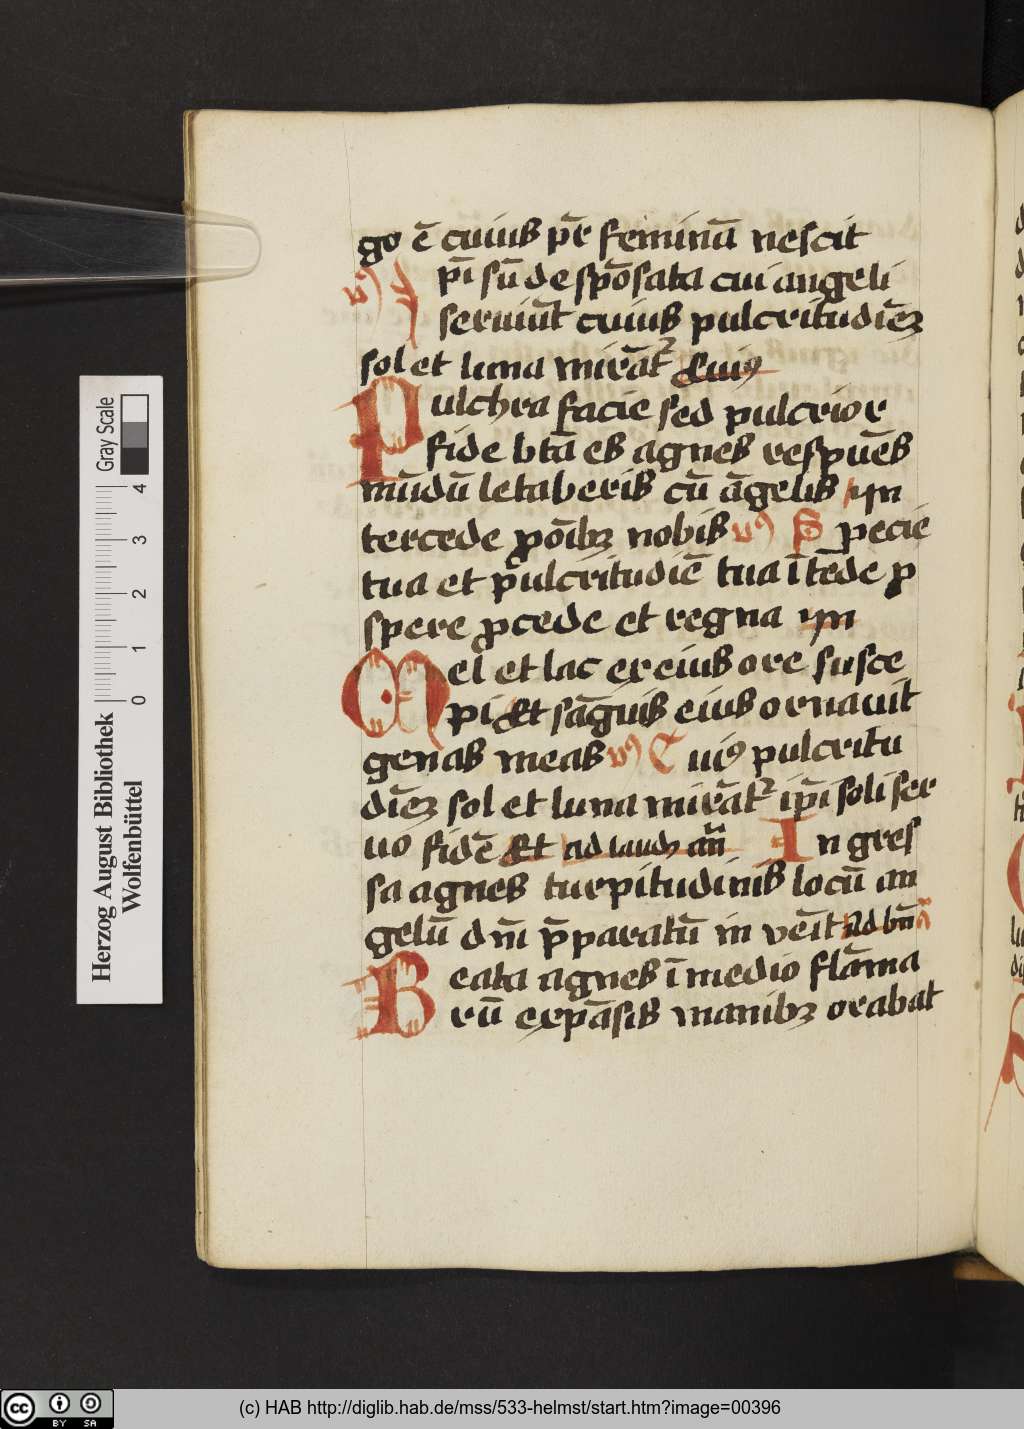 go ē cuius pr̄e feminā nescit
vͥ I pī sū desp̄osata cui angeli
seruiūt cuius pulcritudiēȝ
sol et luna mirāt᷑ Cuiꝰ
Pulchra facie sed pulcrior
fide btā es agnes respuēs
mūdū letaberis cū āgelis yn
tercede ꝓ oībȝ nobis vͥ Specie
tua et pulcritudīe tua ītēde ꝓ
spere ꝓcede et regna yn
Mel et lac ex eius ore susce
pi Et sāguis eius ornauit
genas meas vͥ Cuiꝰ pulcritu
diēȝ sol et luna mirāt᷑ ip̄i soli ser
uo fidē Et ad laudȝ an̄ Ingres
sa agnes turpitudinis locū an
gelū dn̄i p̄paratū in veīt ad bn̄ a
Beata agnes ī medio flāma
rū expāsis manibȝ orabat
Herzog August Bibliothek
Wolfenbüttel
Gray Scale
0 1 2 3 4
cc BY SA
(c) HAB http://diglib.hab.de/mss/533-helmst/start.htm?image=00396